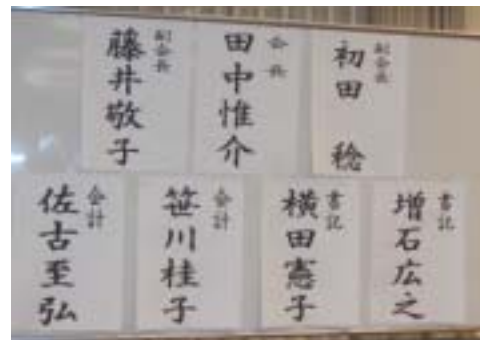 副会長
初田 稔
会長
田中惟介
副会長
藤井敬子
書記
増石広之
書記
横田憲子
会計
笹川桂子
会計
佐古至弘